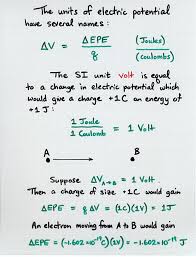 The units of electric potential
have several names:
ΔV = ΔEPE / q (Joules) / (coulombs)
The SI unit volt is equal
to a change in electric potential which
would give a charge +1C an energy of
+1J:
1 Joule / 1 Coulomb = 1 Volt
A B
Suppose ΔV A→B = 1 Volt.
Then a charge of size +1C would gain
ΔEPE = q ΔV = (1C)(1V) = 1J
An electron moving from A to B would gain
ΔEPE = (-1.602×10⁻¹⁹C)(1V) = -1.602×10⁻¹⁹ J